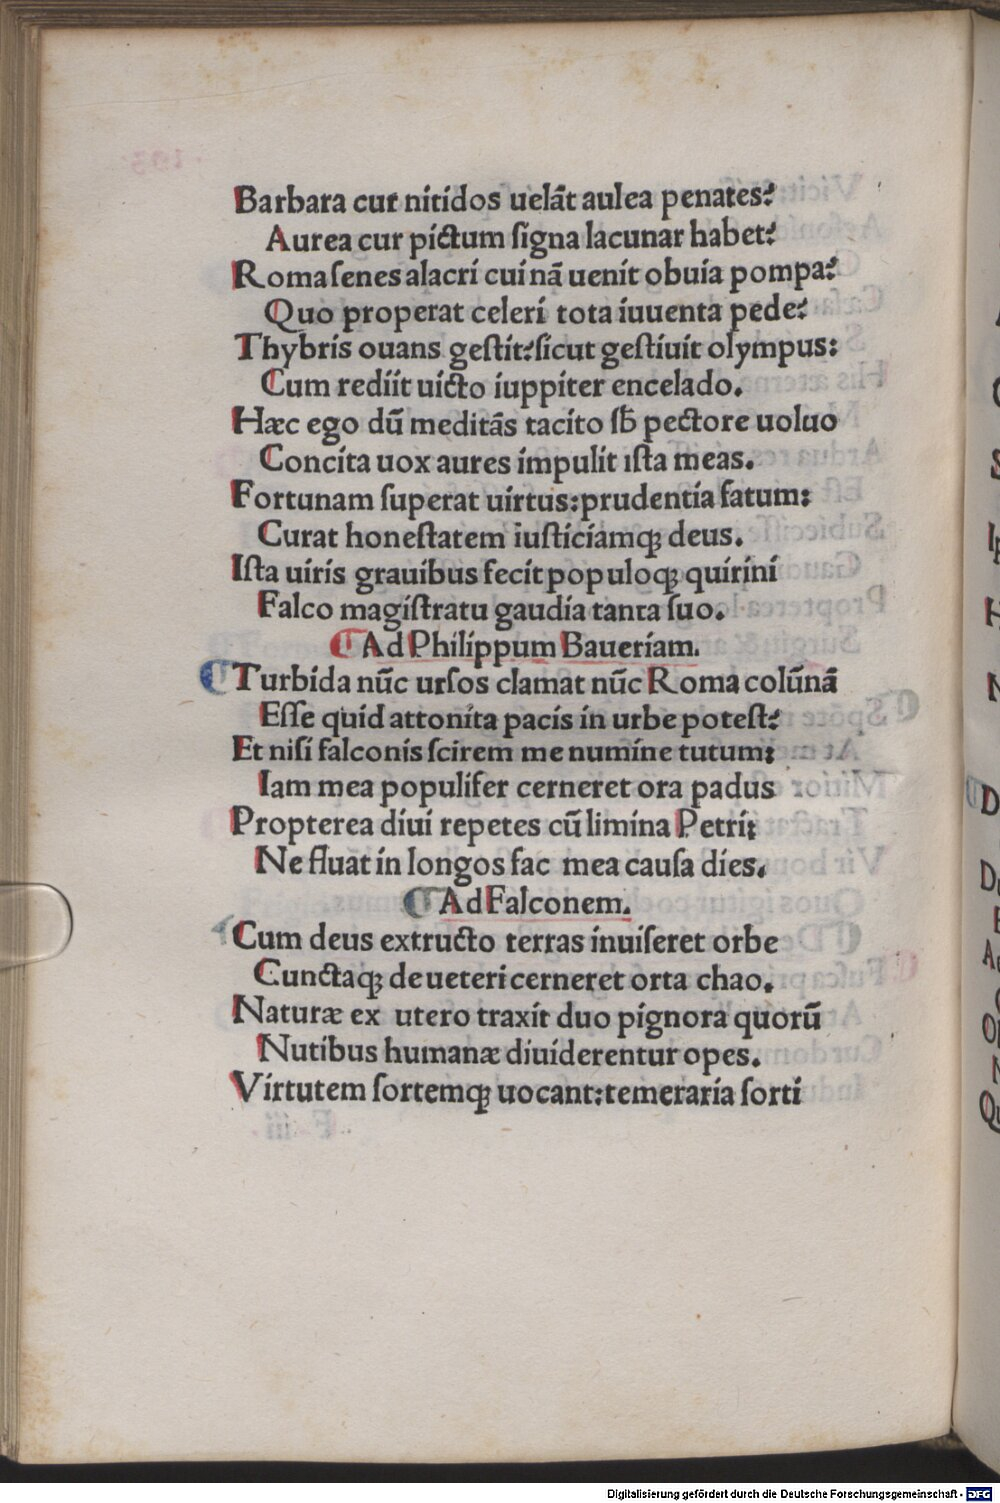 Barbara cur nitidos uelãt aulea penates?
Aurea cur pictum ſigna lacunar habet?
Roma ſenes alacri cui nã uenit obuia pompa?
Quo properat celeri tota iuuenta pede?
Thybris ouans geſtit:ſicut geſtiuit olympus:
Cum rediit uicto iuppiter encelado.
Hæc ego dũ meditãs tacito ſb̄ pectore uoluo
Concita uox aures impulit iſta meas.
Fortunam ſuperat uirtus:prudentia fatum:
Curat honeſtatem iuſticiamqꝫ deus.
Iſta uiris grauibus fecit populoqꝫ quirini
Falco magiſtratu gaudia tanta ſuo.
¶ Ad Philippum Baueriam.
¶ Turbida nũc urſos clamat nũc Roma colũnã
Eſſe quid attonita pacis in urbe poteſt?
Et niſi falconis ſcirem me numine tutum:
Iam mea populifer cerneret ora padus
Propterea diui repetes cũ limina Petri:
Ne fluat in longos fac mea cauſa dies.
¶ Ad Falconem.
Cum deus extructo terras inuiſeret orbe
Cunctaqꝫ de ueteri cerneret orta chao.
Naturæ ex utero traxit duo pignora quorũ
Nutibus humanæ diuiderentur opes.
Virtutem ſortemqꝫ uocant:temeraria ſorti
Digitalisierung gefördert durch die Deutsche Forschungsgemeinschaft - DFG